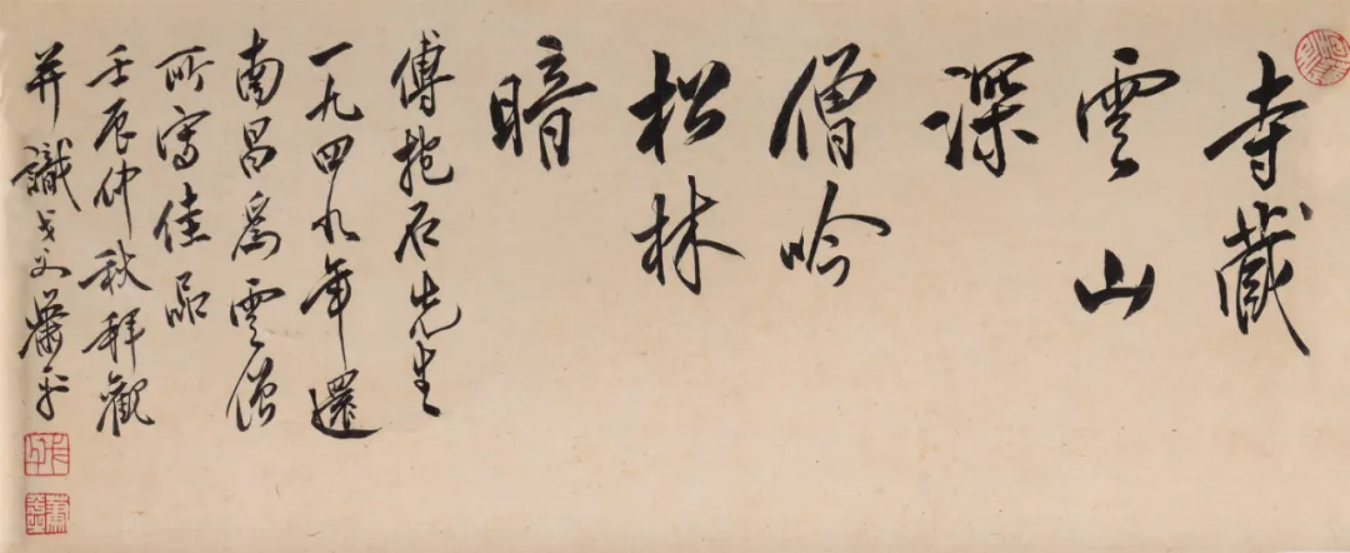 寺藏
雲山
深
僧吟
松林
暗
傅抱石先生
一九四九年還
南昌爲雲僧
所寫佳品
壬辰仲秋拜觀
并識戈父蕭平